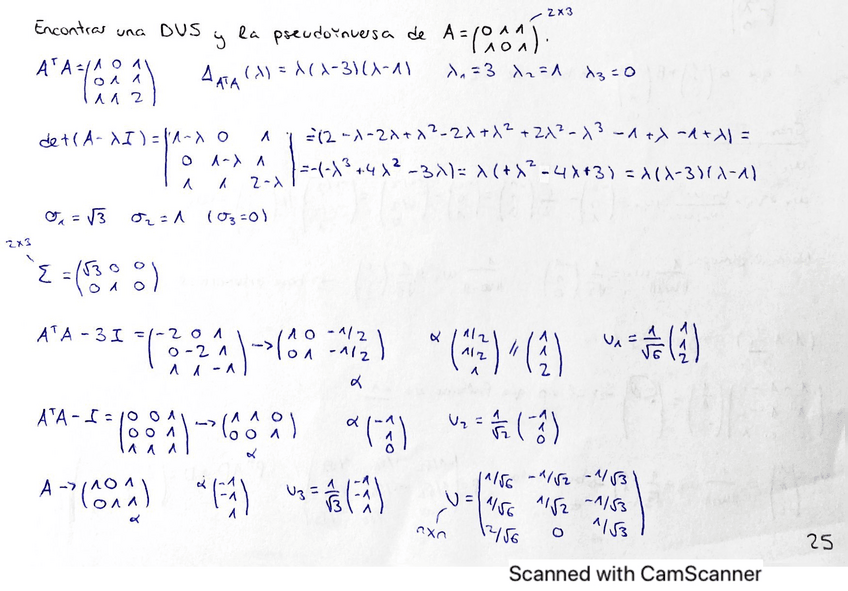 2x3
Encontrar una DVS y la pseudoinversa de A = (0 1 1 / 1 0 1).
AᵀA = (1 0 1 / 0 1 1 / 1 1 2) Δ_AᵀA (λ) = λ(λ-3)(λ-1) λ₁ = 3 λ₂ = 1 λ₃ = 0
det(A - λI) = |1-λ 0 1 / 0 1-λ 1 / 1 1 2-λ| = -(2 - λ - 2λ + λ² - 2λ + λ² + 2λ² - λ³ - 1 + λ - 1 + λ) =
= -(-λ³ + 4λ² - 3λ) = λ(+λ² - 4λ + 3) = λ(λ-3)(λ-1)
σ₁ = √3 σ₂ = 1 (σ₃ = 0)
2x3
Σ = (√3 0 0 / 0 1 0)
AᵀA - 3I = (-2 0 1 / 0 -2 1 / 1 1 -1) → (1 0 -1/2 / 0 1 -1/2) α (1/2 / 1/2 / 1) // (1 / 1 / 2) υ₁ = 1/√6 (1 / 1 / 2)
α
AᵀA - I = (0 0 1 / 0 0 1 / 1 1 1) → (1 1 0 / 0 0 1) α (-1 / 1 / 0) υ₂ = 1/√2 (-1 / 1 / 0)
α
A → (1 0 1 / 0 1 1) α (-1 / -1 / 1) υ₃ = 1/√3 (-1 / -1 / 1) υ = (1/√6 -1/√2 -1/√3 / 1/√6 1/√2 -1/√3 / 2/√6 0 1/√3)
α
nxn
25
Scanned with CamScanner